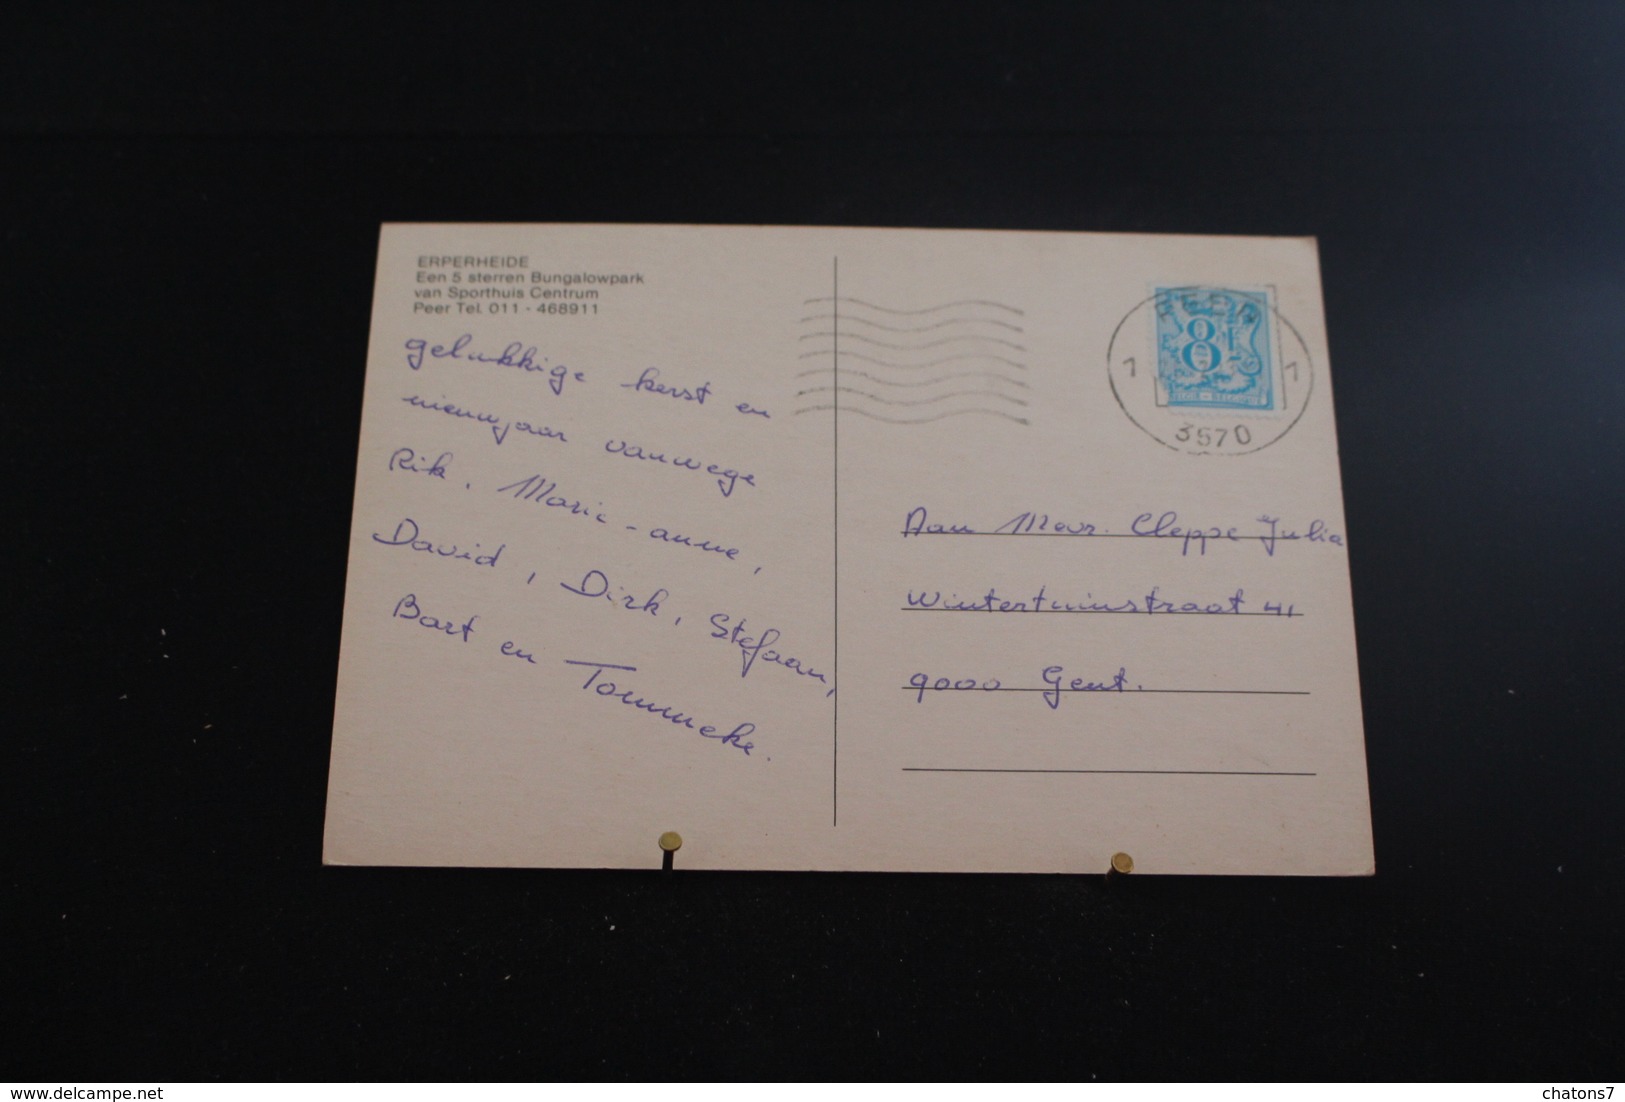 ERPERHEIDE
Een 5 sterren Bungalowpark
van Sporthuis Centrum
Peer Tel. 011 - 468911
gelukkige kerst en
nieuwjaar vanwege
Rik, Marie-anne,
David, Dirk, Stefaan,
Bart en Tommeke.
PEER
1 1
3670
8F
BELGIE - BELGIQUE
Aan Mevr. Cleppe Julia
Wintertuinstraat 41
9000 Gent.
delcampe.net
chatons7